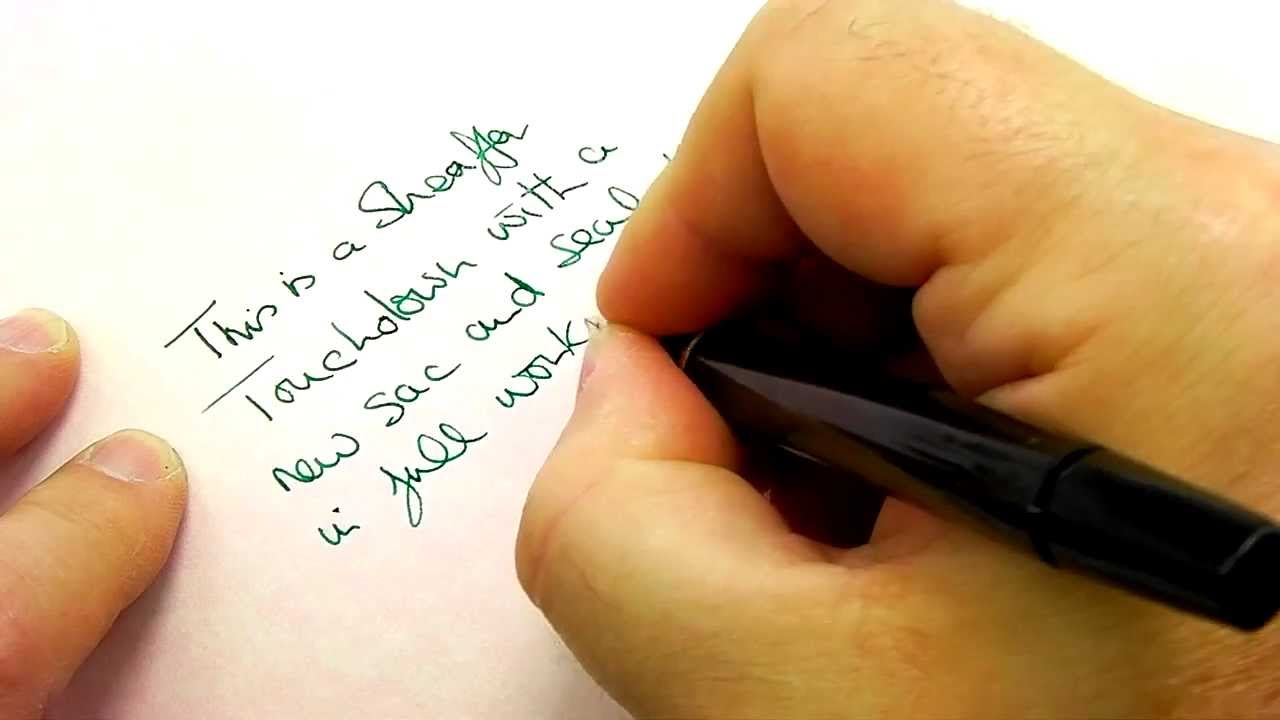 This is a Sheaffer
Touchdown with a
new sac and seal
in full work